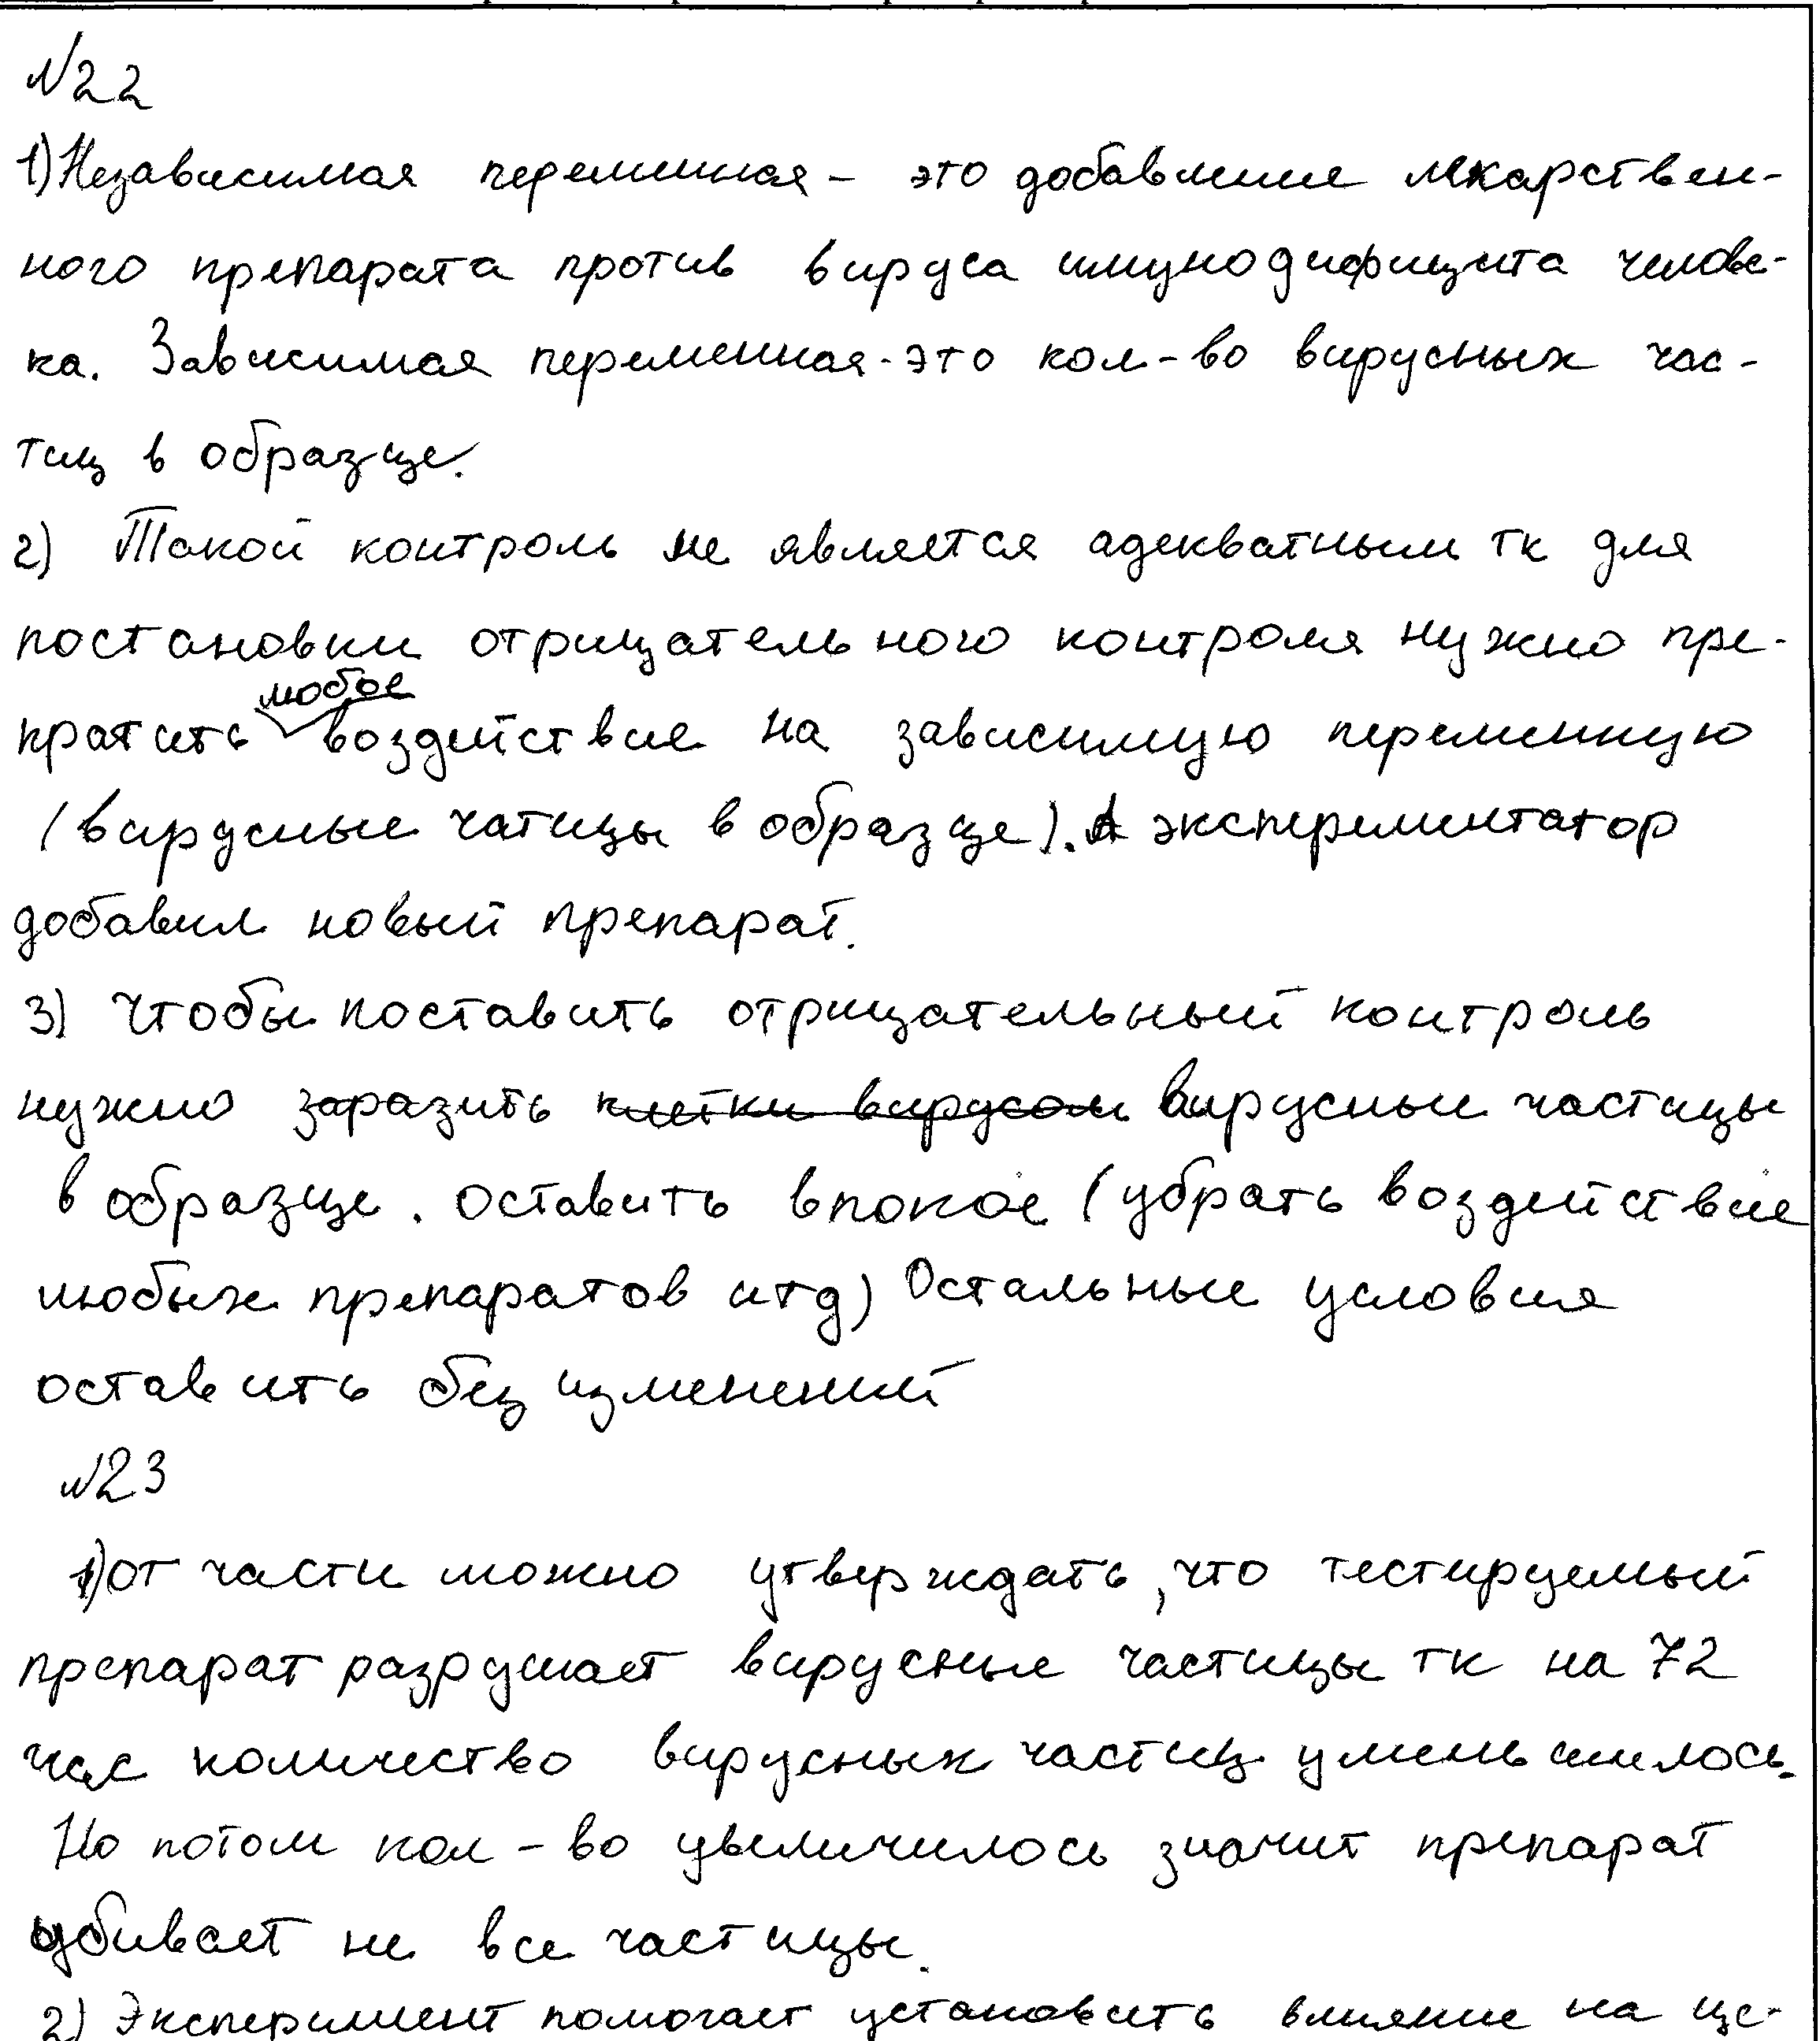 №22
1) Независимая переменная – это добавление лекарствен-
ного препарата против вируса имунодифицита челове-
ка. Зависимая переменная - это кол-во вирусных час-
тиц в образце.
2) Такой контроль не является адекватным тк для
постановки отрицательного контроля нужно пре-
кратить любое воздействие на зависимую переменную
(вирусные чатицы в образце). А эксперементатор
добавил новый препарат.
3) Чтобы поставить отрицательный контроль
нужно заразить клетки вирусом вирусные частицы
в образце. оставить впокое (убрать воздействие
любых препаратов итд) Остальные условия
оставить без изменений
№23
1) от части можно утверждать, что тестируемый
препарат разрушает вирусные частицы тк на 72
час количество вирусных частиц уменьшилось.
Но потом кол-во увеличилось значит препарат
убивает не все частицы.
2) Эксперимент помогает установить влияние на це-